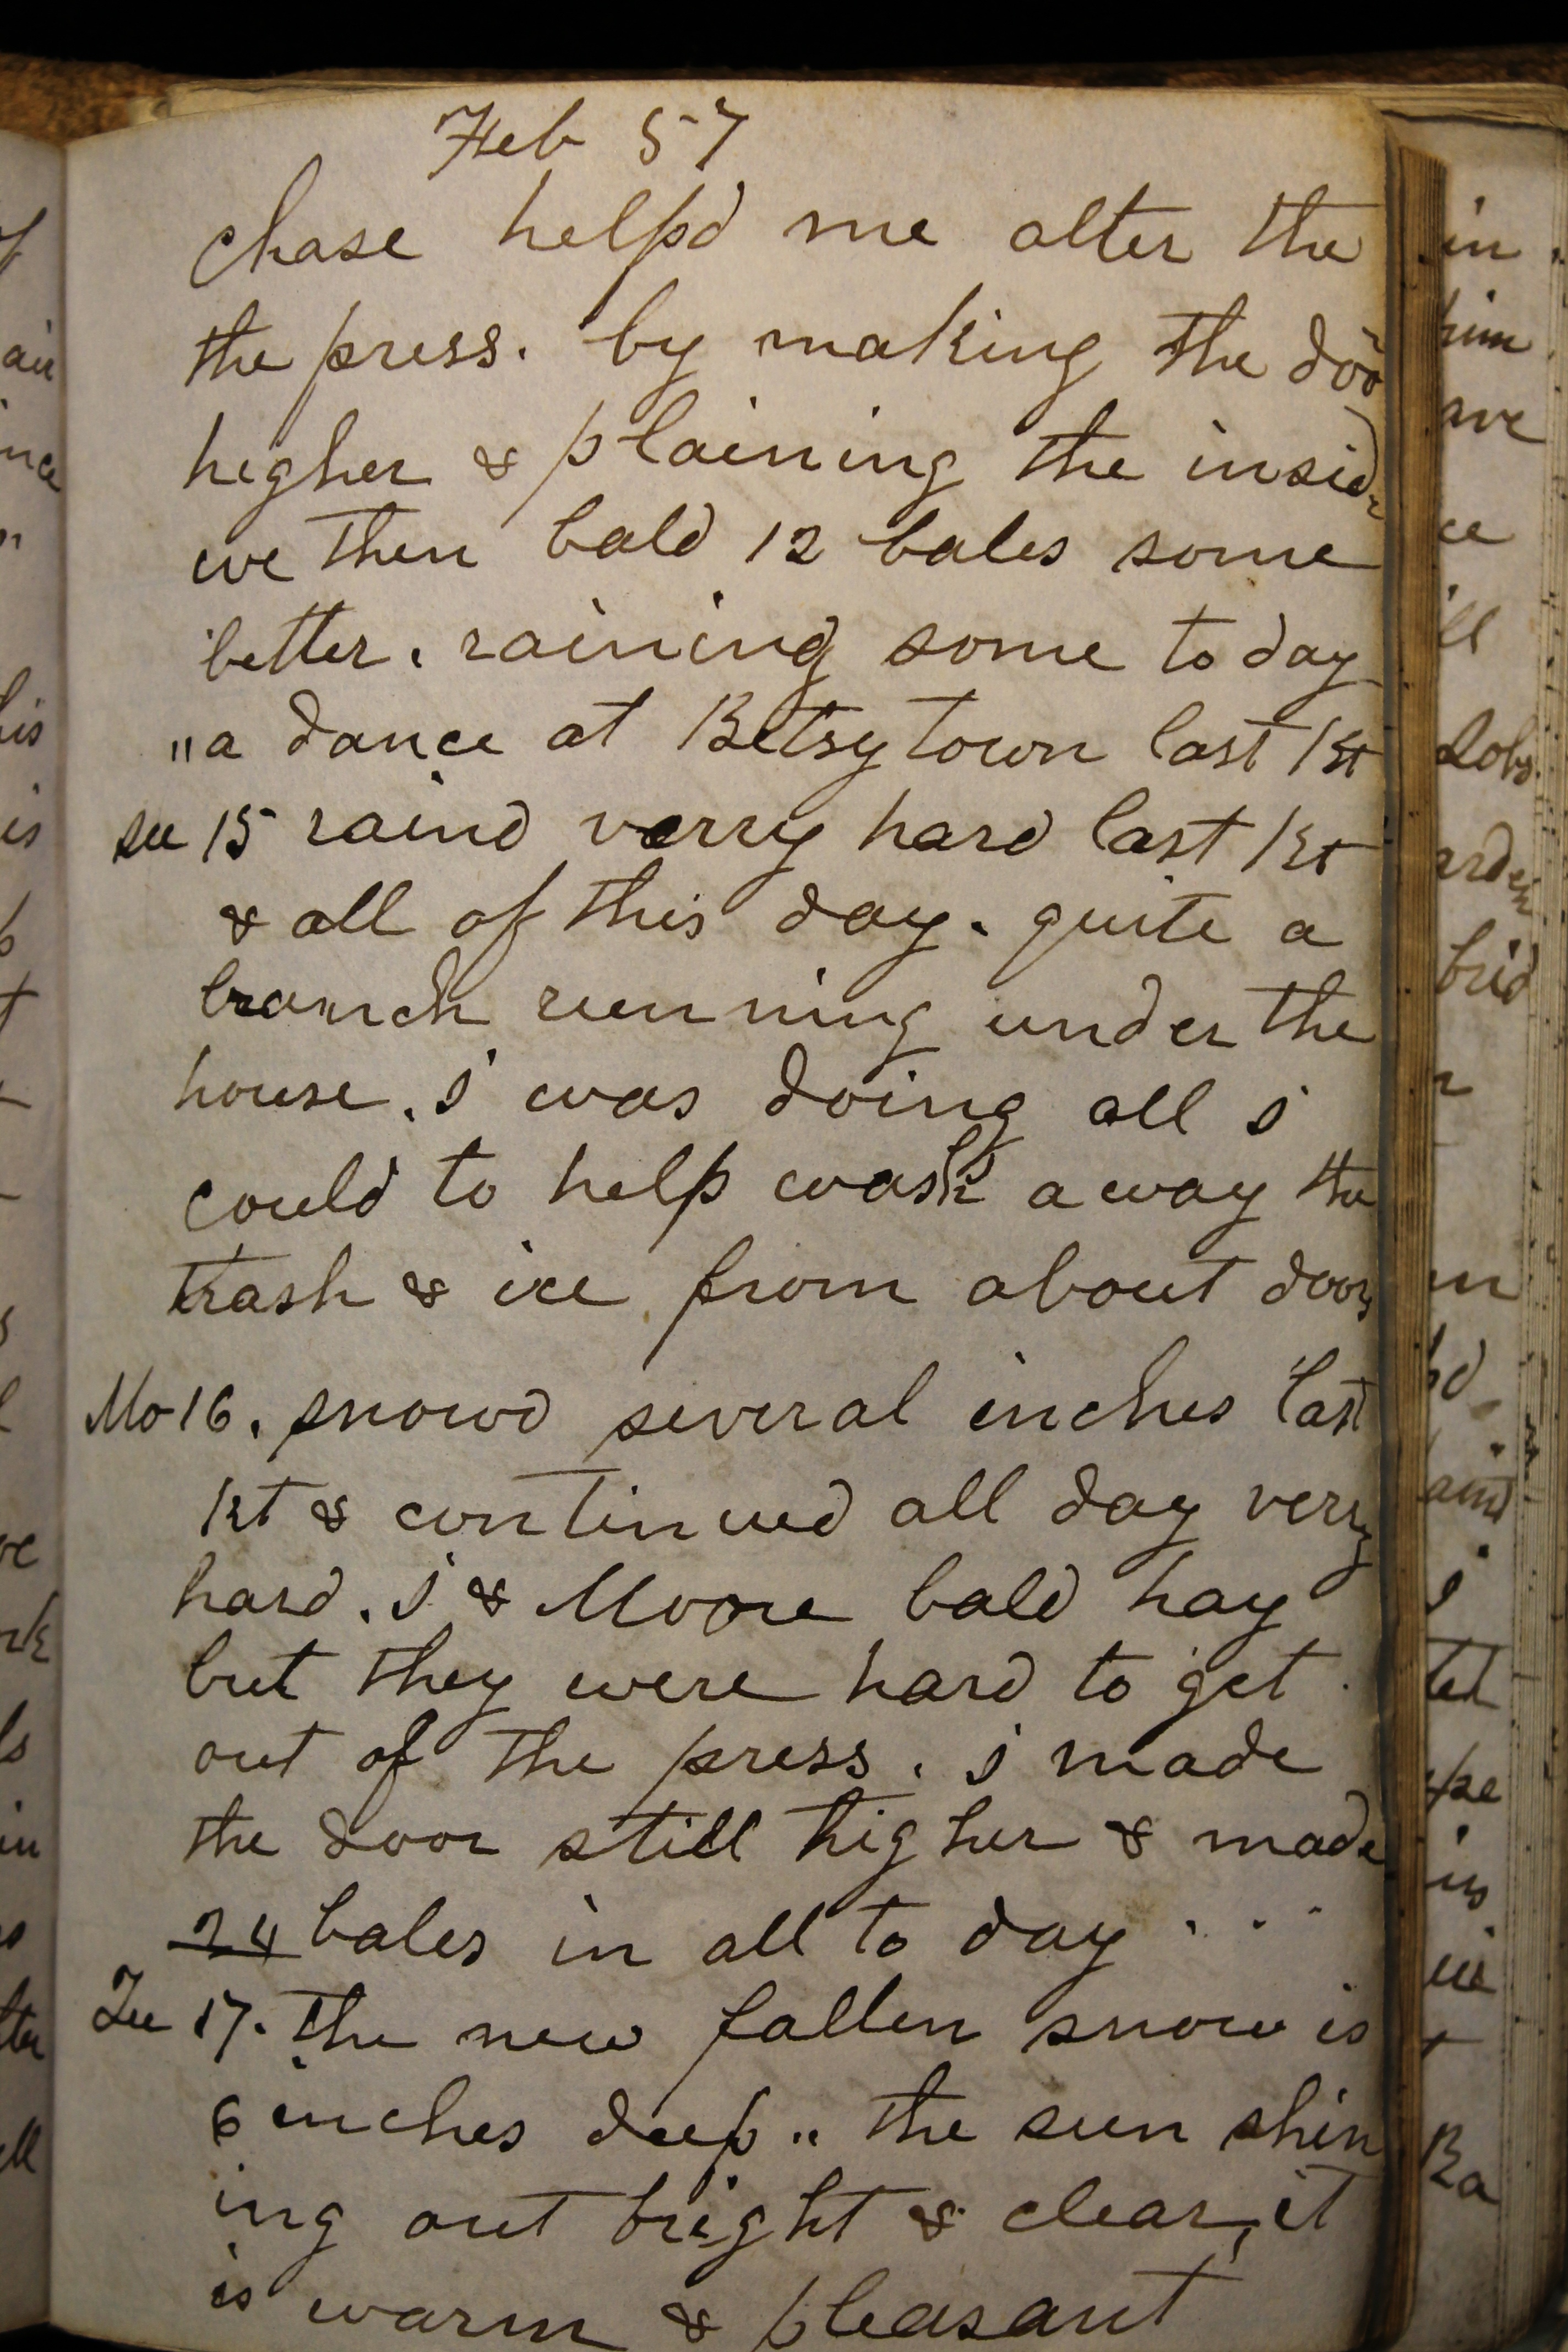 Feb 57
Chase helpd me alter the
the press. by making the doo
higher & plaining the inside
we then bald 12 bales some
better. raining some to day
"a dance at Betsytown last
su 15 raind verry hard last
& all of this day. quite a
branch running under the
house. i was doing all i
could to help wash away the
trash & ice from about doors
Mo 16. snowd several inches last
& continued all day very
hard. i & Moore bald hay
but they were hard to get
out of the press. i made
the door still higher & made
24 bales in all to day . . .
Tu 17. the new fallen snow is
6 inches deep.. the sun shin
ing out bright & clear, it
is warm & pleasant